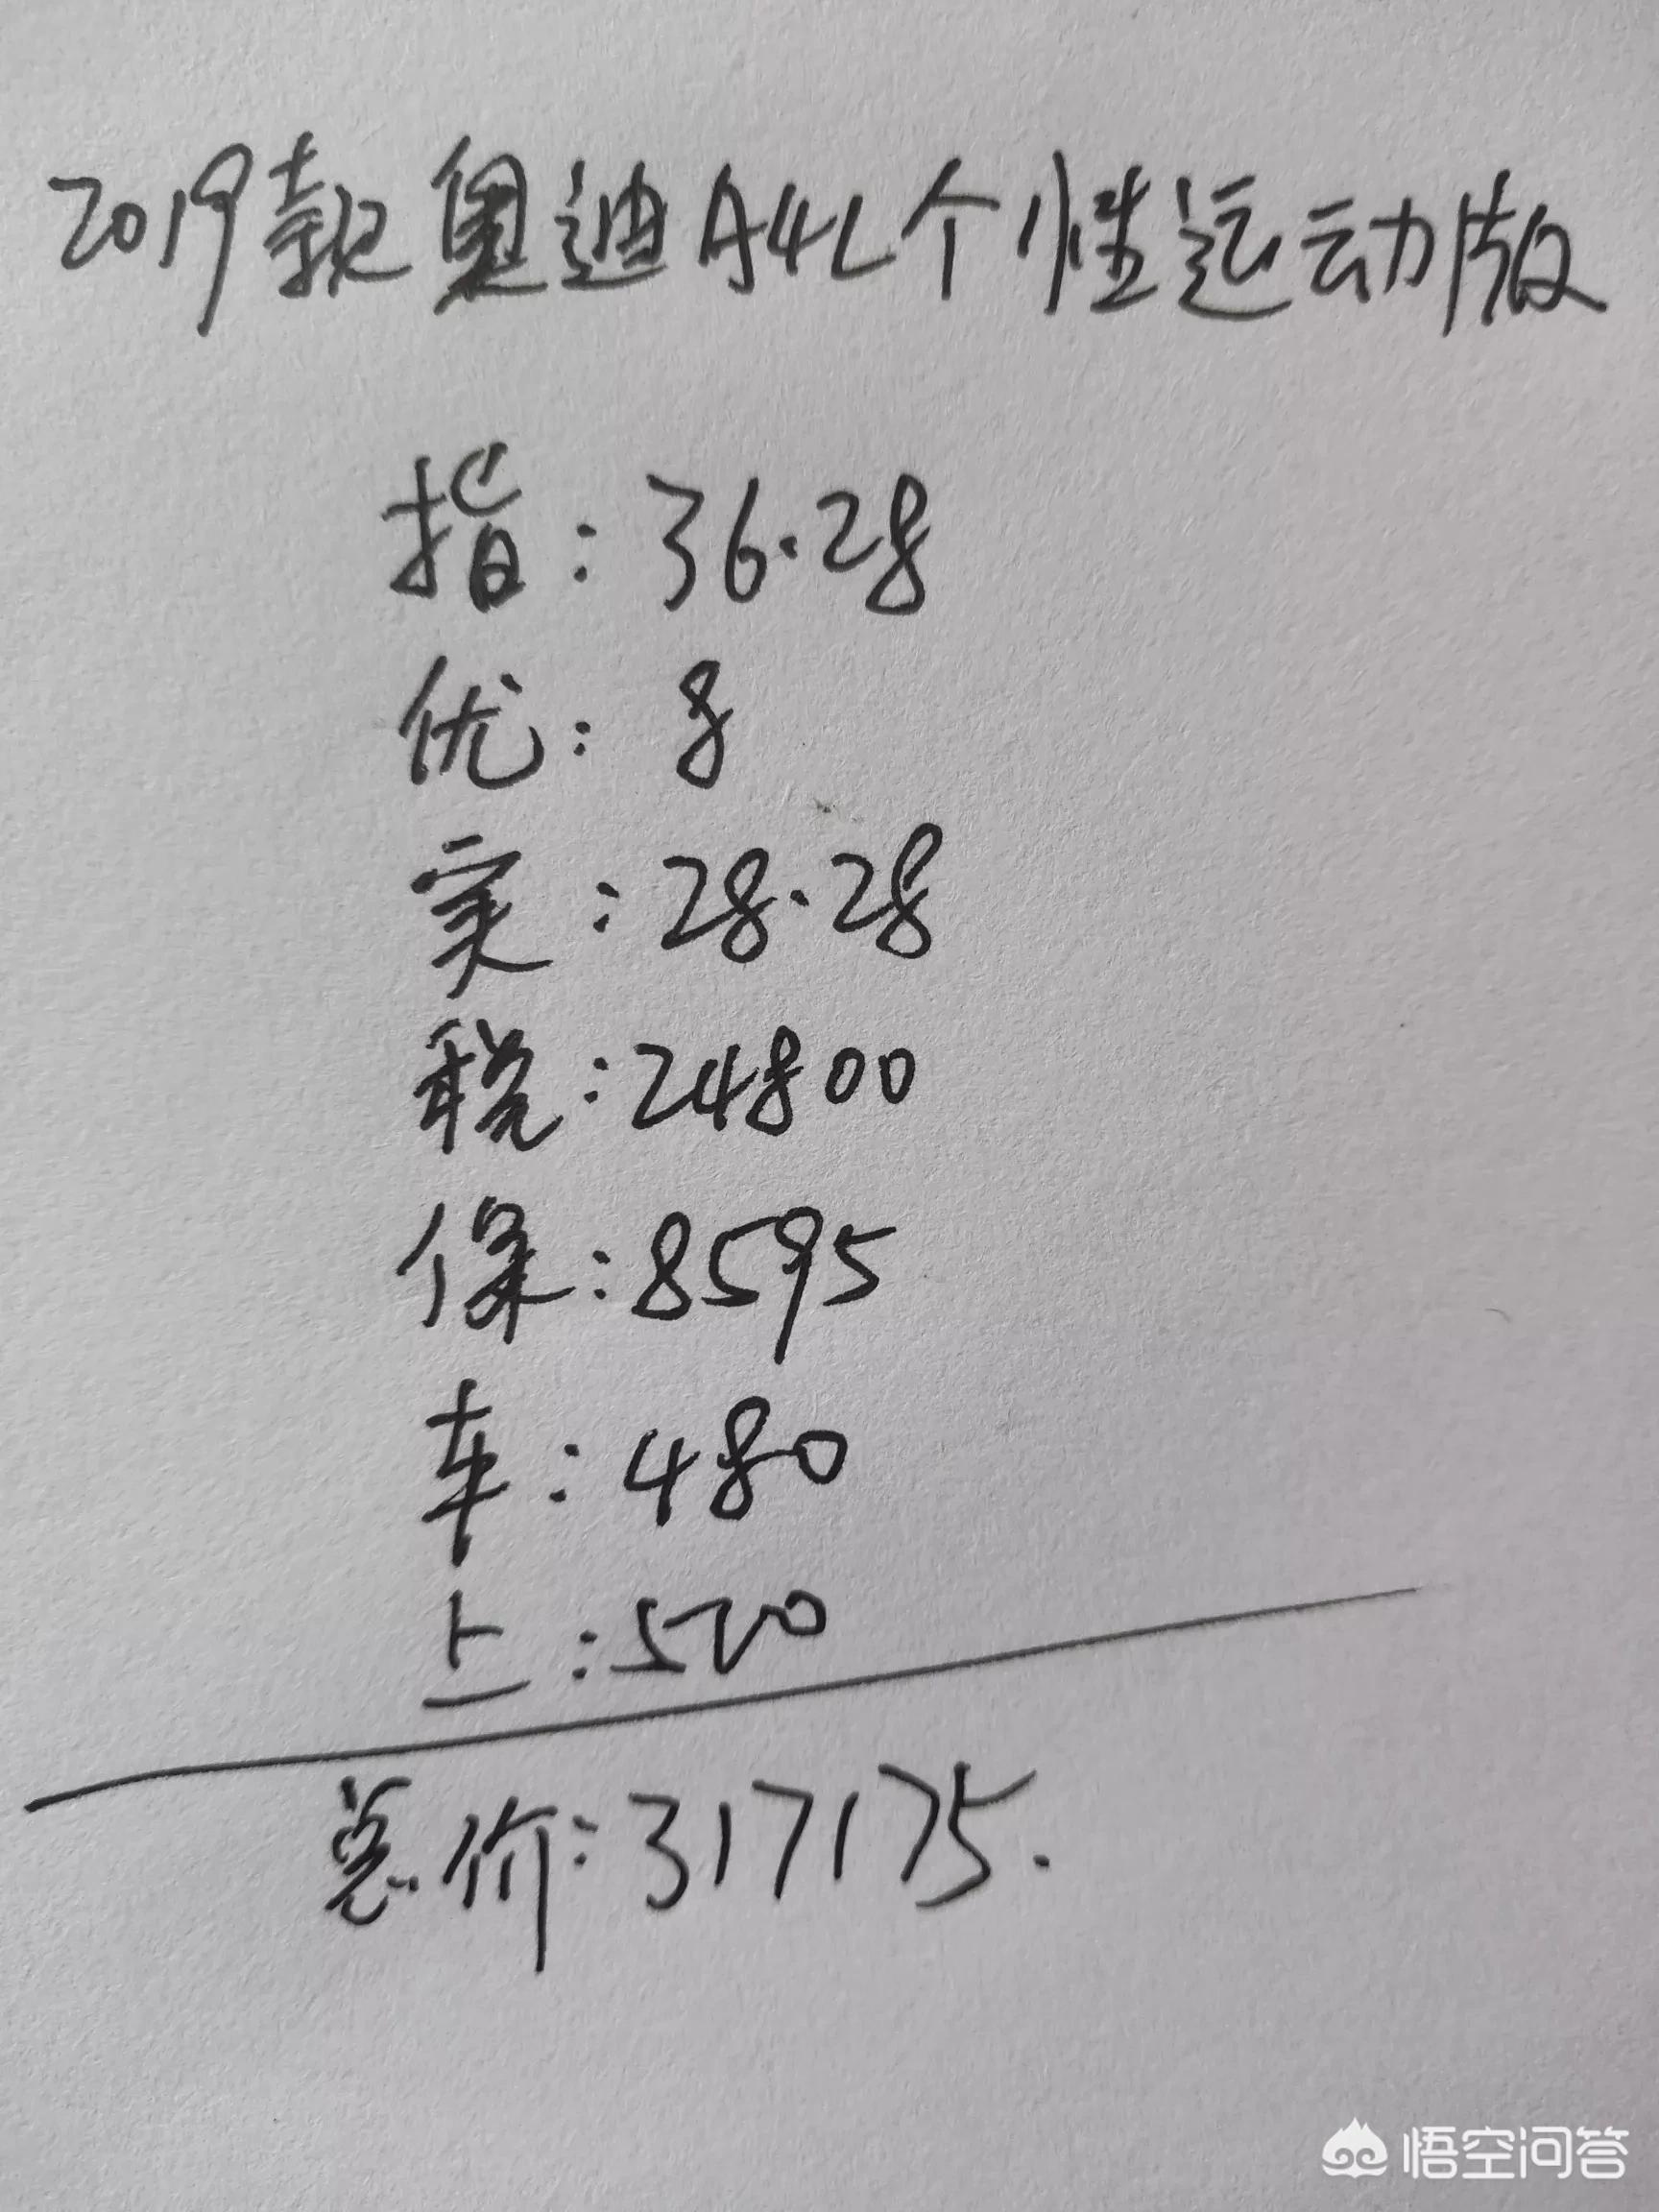 2019款奥迪A4L个性运动版
指:36.28
优:8
实:28.28
税:24800
保:8595
车:480
上:520
总价:317175.
悟空问答